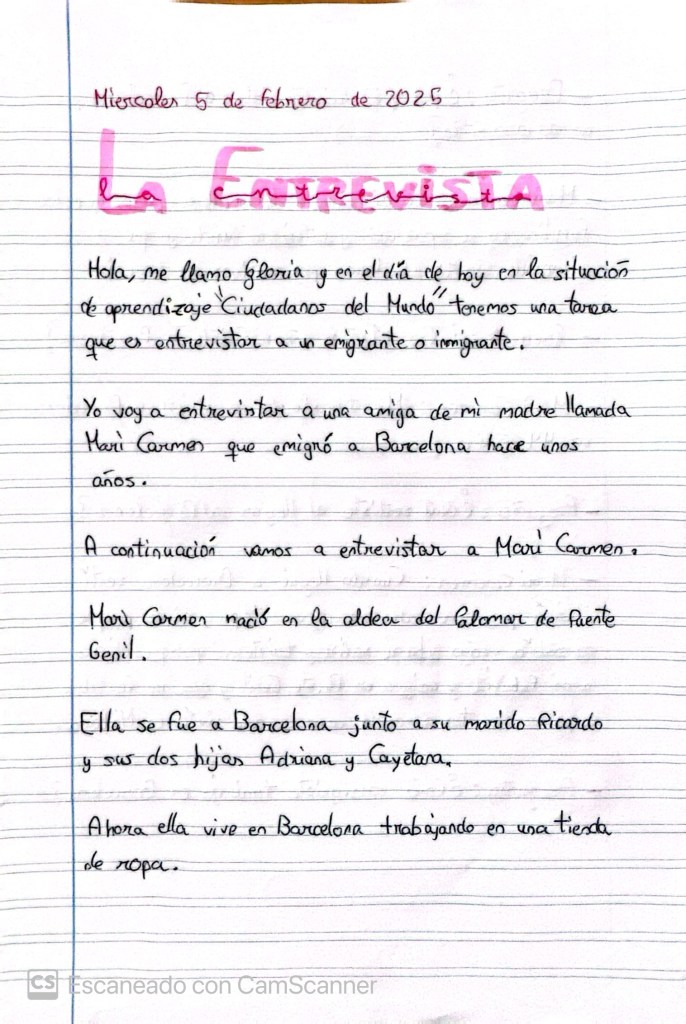 Miercoles 5 de febrero de 2025
La Entrevista
Hola, me llamo Gloria y en el día de hoy en la situación
de aprendizaje "Ciudadanos del Mundo" tenemos una tarea
que es entrevistar a un emigrante o inmigrante.
Yo voy a entrevistar a una amiga de mi madre llamada
Mari Carmen que emigró a Barcelona hace unos
años.
A continuación vamos a entrevistar a Mari Carmen.
Mari Carmen nació en la aldea del Palomar de Puente
Genil.
Ella se fue a Barcelona junto a su marido Ricardo
y sus dos hijas Adriana y Cayetana.
Ahora ella vive en Barcelona trabajando en una tienda
de ropa.
CS Escaneado con CamScanner